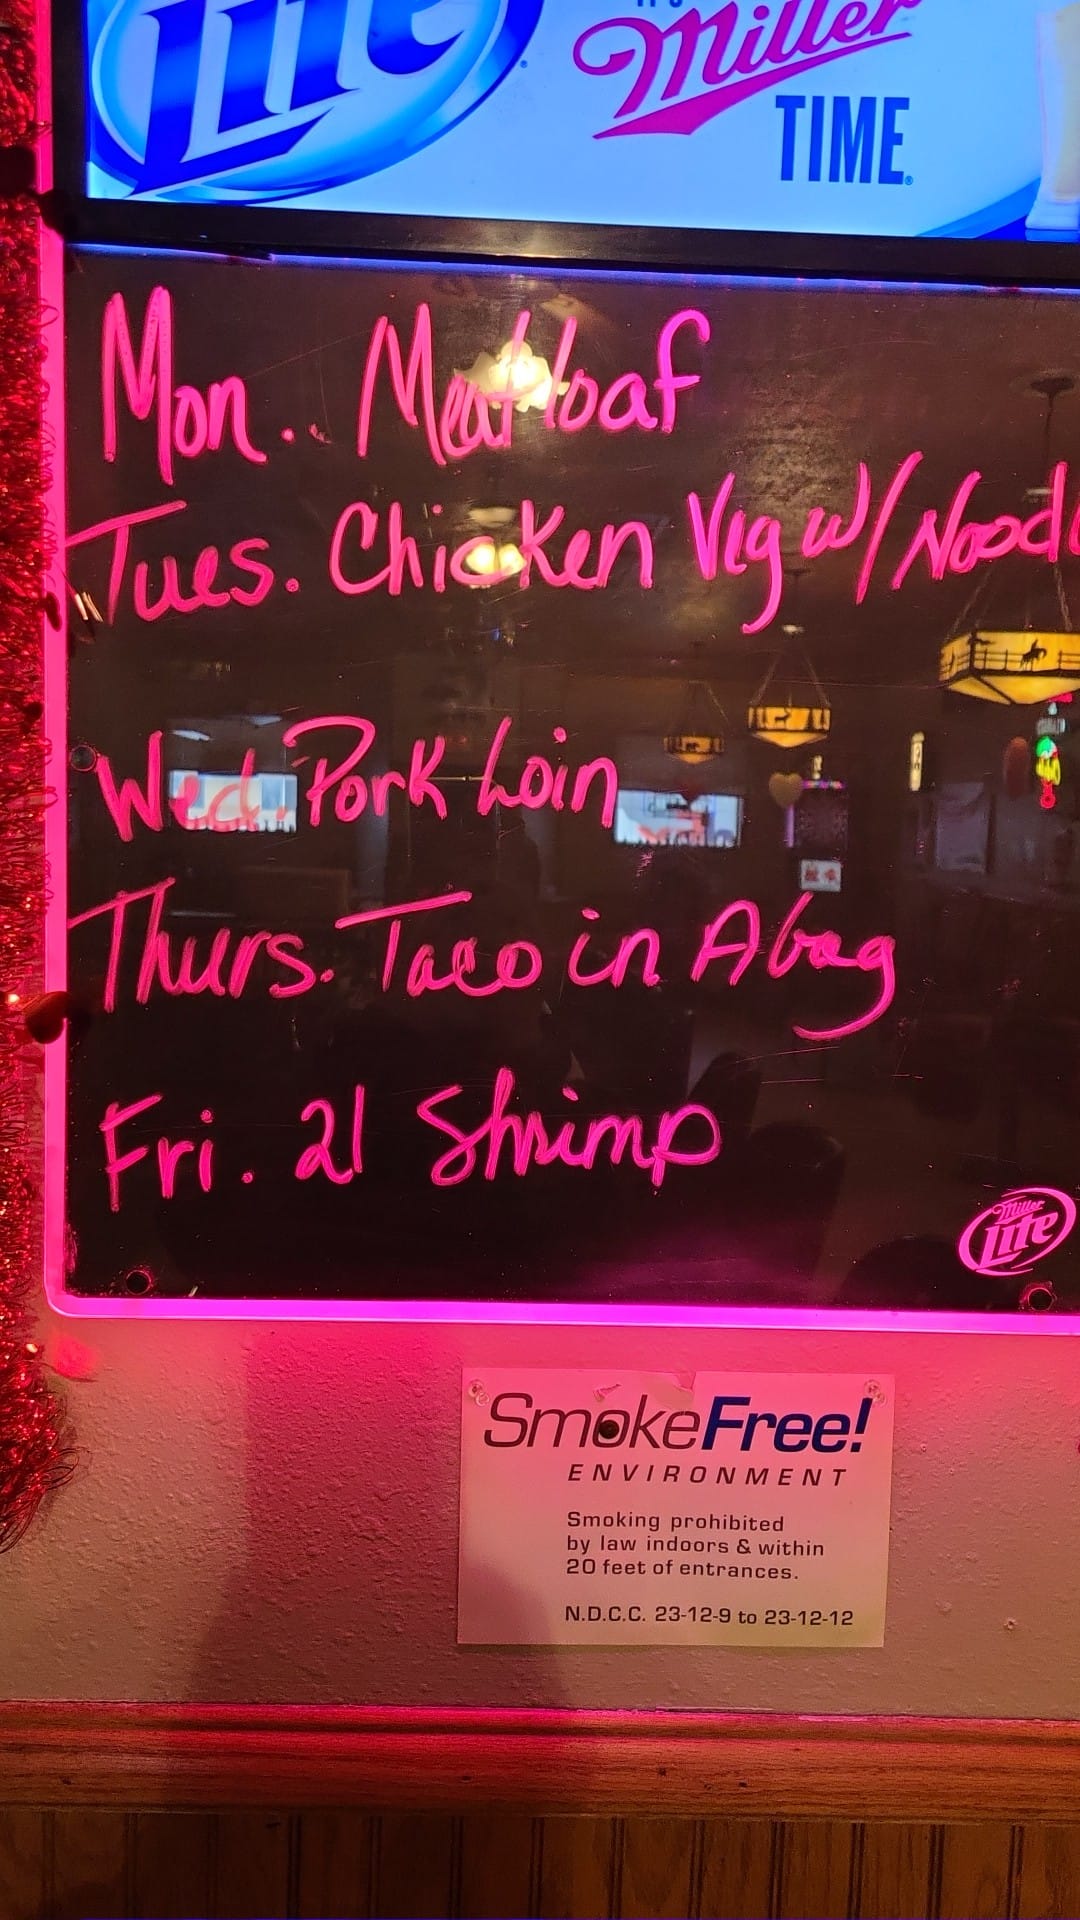 Lite
Miller
TIME
Mon. Meatloaf
Tues. Chicken Veg w/ Nood
Wed. Pork Loin
Thurs. Taco in A bag
Fri. 21 Shrimp
Miller
Lite
SmokeFree!
ENVIRONMENT
Smoking prohibited
by law indoors & within
20 feet of entrances.
N.D.C.C. 23-12-9 to 23-12-12